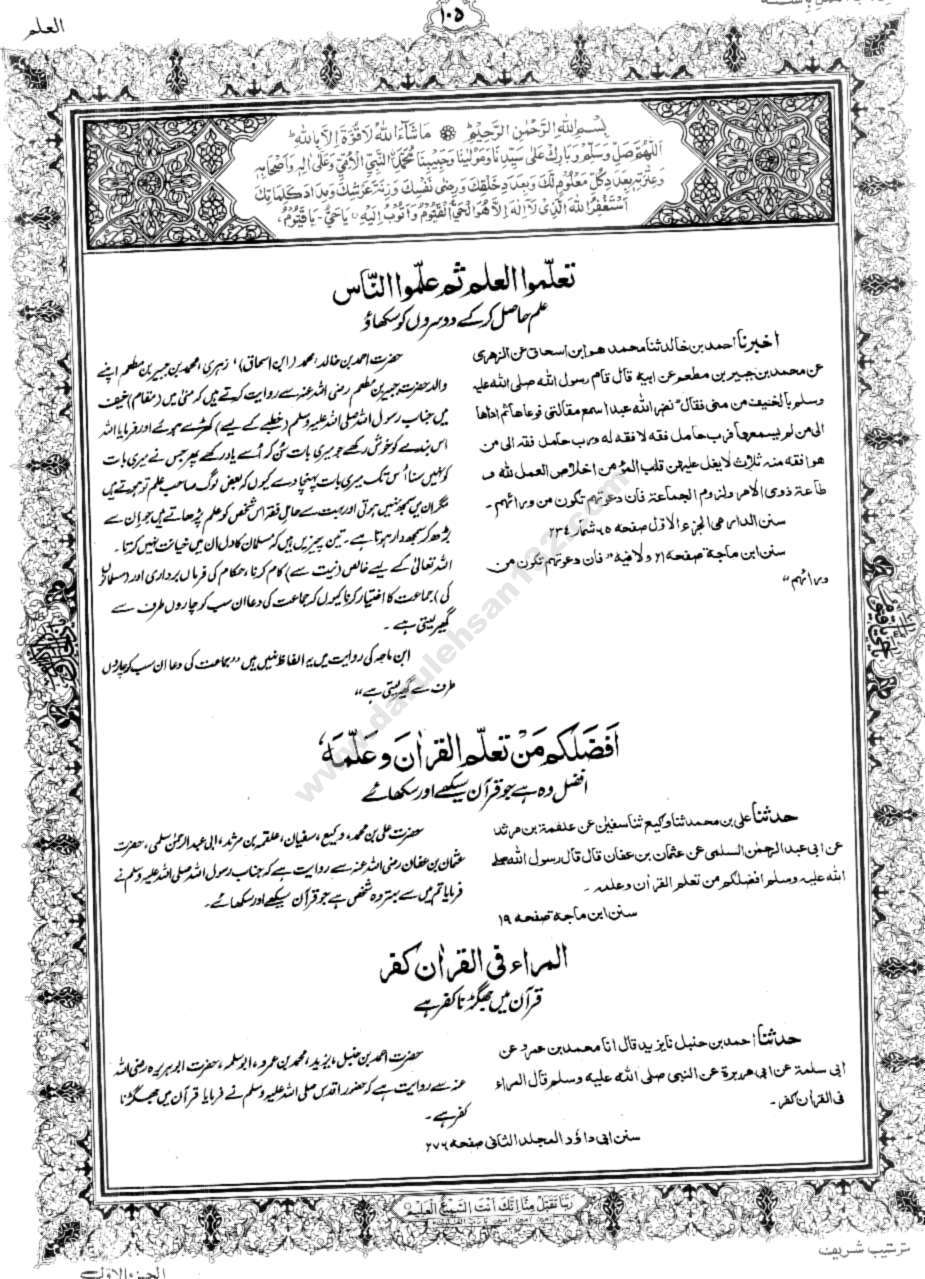 العلم
١٠٥
بِسْمِ اللهِ الرَّحْمٰنِ الرَّحِيْمِ مَا شَآءَ اللهُ لَا قُوَّةَ اِلَّا بِاللهِ
اَللّٰهُمَّ صَلِّ وَسَلِّمْ وَبَارِكْ عَلٰى سَيِّدِنَا وَمَوْلَيْنَا وَحَبِيْبِنَا مُحَمَّدِ النَّبِيِّ الْاُمِّيِّ وَعَلٰى اٰلِهٖ وَاَصْحَابِهٖ
وَعِتْرَتِهٖ بِعَدَدِ كُلِّ مَعْلُوْمٍ لَّكَ وَبِعَدَدِ خَلْقِكَ وَرِضٰى نَفْسِكَ وَزِنَةَ عَرْشِكَ وَمِدَادَ كَلِمَاتِكَ
اَسْتَغْفِرُ اللهَ الَّذِيْ لَآ اِلٰهَ اِلَّا هُوَ الْحَيُّ الْقَيُّوْمُ وَاَتُوْبُ اِلَيْهِ يَا حَيُّ يَا قَيُّوْمُ
تعلّموا العلم ثم علّموا النّاس
علم حاصل کر کے دوسروں کو سکھاؤ
اخبرنا احمد بن خالد ثنا محمد هو ابن اسحاق عن الزهری
عن محمد بن جبیر بن مطعم عن ابیه قال قام رسول الله صلی الله علیه
وسلم بالخیف من منی فقال نضر الله عبدا سمع مقالتی فوعاها ثم اداها
الی من لم یسمعها فرب حامل فقه لا فقه له ورب حامل فقه الی من
هو افقه منه ثلاث لا یغل علیهن قلب المؤمن اخلاص العمل لله و
طاعة ذوی الامر ولزوم الجماعة فان دعوتهم تکون من ورائهم ۔
سنن الدارمی الجزء الاول صفحه ٦٥ شمار ٢٣٤
سنن ابن ماجة صفحه ٢١ ولا فیه "فان دعوتهم تکون من
ورائهم"
حضرت احمد بن خالد، محمد (ابن اسحاق)، زہری، محمد بن جبیر بن مطعم اپنے
والد حضرت جبیر بن مطعم رضی اللہ عنہ سے روایت کرتے ہیں کہ منیٰ میں (مقام) خیف
میں جناب رسول اللہ صلی اللہ علیہ وسلم (خطبے کے لیے) کھڑے ہوئے اور فرمایا اللہ
اس بندے کو خوش رکھے جو میری بات سن کر اُسے یاد رکھے پھر جس نے میری بات
کو نہیں سنا اُس تک میری بات پہنچا دے کیوں کہ بعض لوگ صاحب علم تو ہوتے ہیں
مگر ان میں سمجھ نہیں ہوتی اور بہت سے حامل فقہ اس شخص کو علم پڑھاتے ہیں جو ان سے
بڑھ کر سمجھ دار ہوتا ہے۔ تین چیزیں ہیں کہ مسلمان کا دل ان میں خیانت نہیں کرتا۔
اللہ تعالیٰ کے لیے خالص (نیت سے) کام کرنا، حکام کی فرماں برداری اور (مسلمانوں
کی) جماعت کا اختیار کرنا کیوں کہ جماعت کی دعا ان سب کو چاروں طرف سے
گھیر لیتی ہے۔
ابن ماجہ کی روایت میں یہ الفاظ نہیں ہیں "جماعت کی دعا ان سب کو چاروں
طرف سے گھیر لیتی ہے"
اَفْضَلُكُمْ مَنْ تَعَلَّمَ الْقُرْاٰنَ وَعَلَّمَهٗ
افضل وہ ہے جو قرآن سیکھے اور سکھائے
حدثنا علی بن محمد ثنا وکیع ثنا سفین عن علقمة بن مرثد
عن ابی عبد الرحمن السلمی عن عثمان بن عفان قال قال رسول الله صلی
الله علیه وسلم افضلکم من تعلم القران وعلمه ۔
سنن ابن ماجة صفحه ١٩
حضرت علی بن محمد، وکیع، سفیان، علقمہ بن مرثد، ابی عبد الرحمٰن سلمی، حضرت
عثمان بن عفان رضی اللہ عنہ سے روایت ہے کہ جناب رسول اللہ صلی اللہ علیہ وسلم نے
فرمایا تم میں سے بہتر وہ شخص ہے جو قرآن سیکھے اور سکھائے۔
المراء فی القراٰن کفر
قرآن میں جھگڑنا کفر ہے
حدثنا احمد بن حنبل نا یزید قال انا محمد بن عمرو عن
ابی سلمة عن ابی هریرة عن النبی صلی الله علیه وسلم قال المراء
فی القران کفر ۔
سنن ابی داؤد المجلد الثانی صفحه ٢٧٦
حضرت احمد بن حنبل، یزید، محمد بن عمرو، ابو سلمہ، حضرت ابو ہریرہ رضی اللہ
عنہ سے روایت ہے کہ حضور اقدس صلی اللہ علیہ وسلم نے فرمایا قرآن میں جھگڑنا
کفر ہے۔
رَبَّنَا تَقَبَّلْ مِنَّا اِنَّكَ اَنْتَ السَّمِيْعُ الْعَلِيْمُ
ترتیب شریف
الجزء الاول